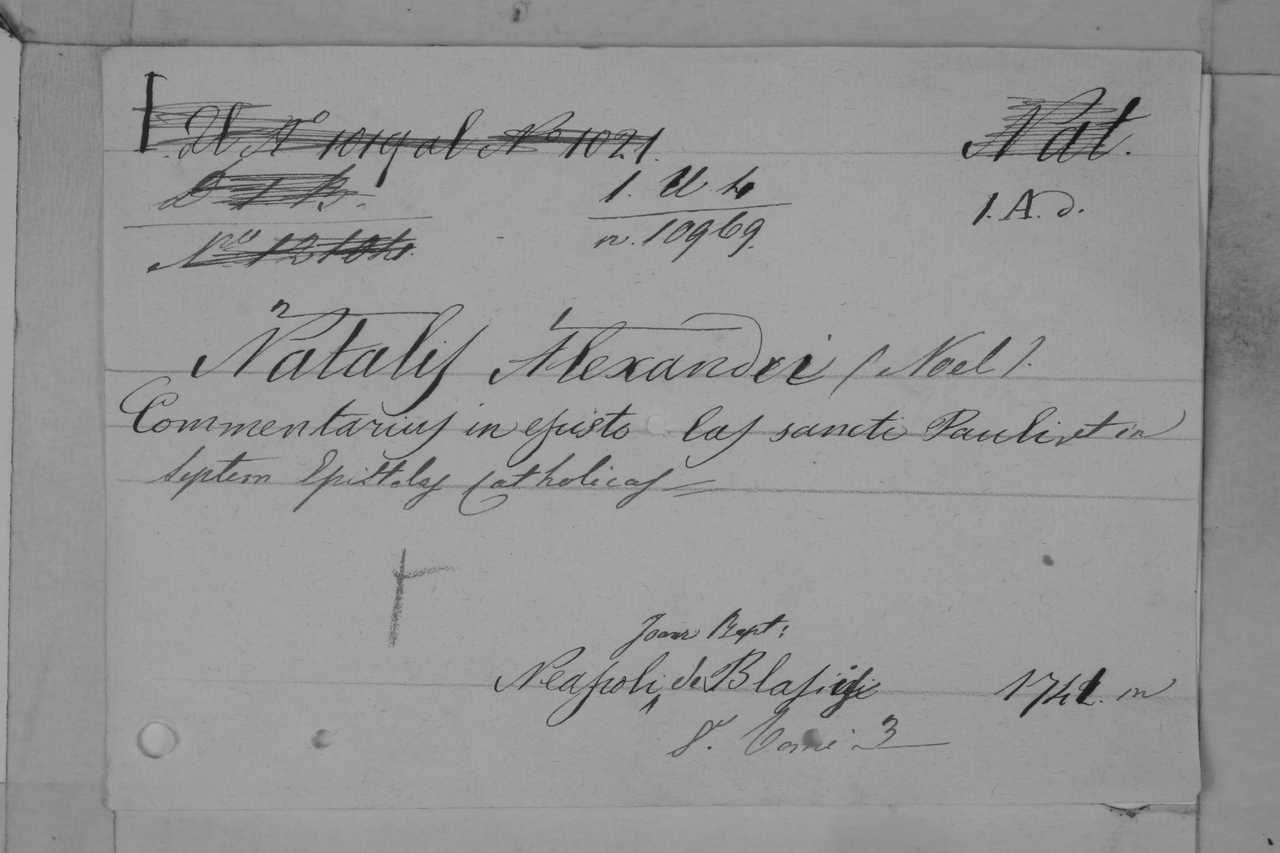 Dal Nº 1019 al Nº 1021. Nat.
D I B. 1. U 4 1. A. d.
Nro 12104. n. 10969.
Natalis Alexandri (Noel).
Commentarius in episto las sancti Pauli et in
septem Epistolas Catholicas =
Joan Bapt:
Neapoli de Blasi 1741. in
8º. Tomi 3